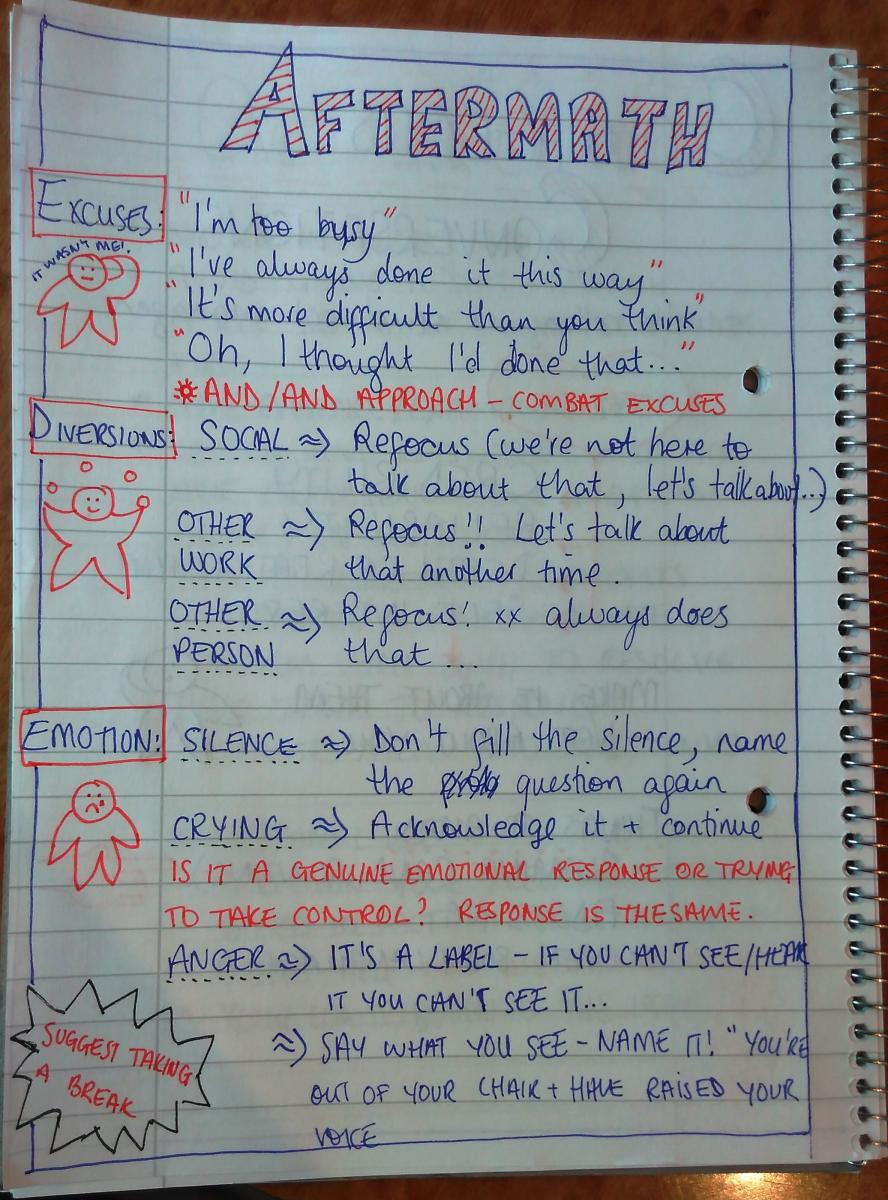 AFTERMATH
EXCUSES: "I'm too busy"
IT WASN'T ME!
"I've always done it this way"
"It's more difficult than you think"
"Oh, I thought I'd done that..."
AND/AND APPROACH - COMBAT EXCUSES
DIVERSIONS: SOCAL ⇒ Refocus (we're not here to
talk about that, let's talk about..)
OTHER ⇒ Refocus!! Let's talk about
WORK that another time.
OTHER ⇒ Refocus! xx always does
PERSON that ...
EMOTION: SILENCE ⇒ Don't fill the silence, name
the question again
CRYING ⇒ Acknowledge it + continue
IS IT A GENUINE EMOTIONAL RESPONSE OR TRYING
TO TAKE CONTROL? RESPONSE IS THE SAME.
ANGER ⇒ IT'S A LABEL - IF YOU CAN'T SEE/HEAR
IT YOU CAN'T SEE IT...
⇒ SAY WHAT YOU SEE - NAME IT! "YOU'RE
OUT OF YOUR CHAIR + HAVE RAISED YOUR
VOICE
SUGGEST TAKING
A BREAK